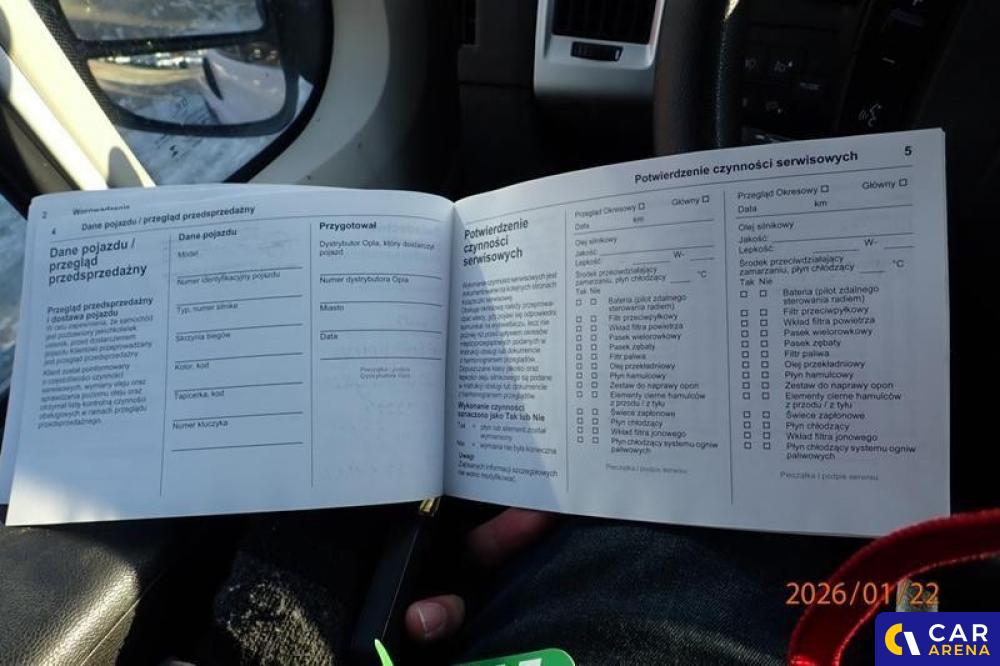 2 Wprowadzenie
4 Dane pojazdu / przegląd przedsprzedażny
Dane pojazdu /
przegląd
przedsprzedażny
Przegląd przedsprzedażny
i dostawa pojazdu
W celu zapewnienia, że samochód
jest pozbawiony jakichkolwiek
usterek, przed dostarczeniem
pojazdu klientowi przeprowadzany
jest przegląd przedsprzedażny.
Klient został poinformowany
o częstotliwości czynności
serwisowych, wymiany oleju oraz
sprawdzania poziomu oleju oraz
otrzymał listę kontrolną czynności
obsługowych w ramach przeglądu
przedsprzedażnego.
Dane pojazdu
Model
Numer identyfikacyjny pojazdu
Typ, numer silnika
Skrzynia biegów
Kolor, kod
Tapicerka, kod
Numer kluczyka
Przygotował
Dystrybutor Opla, który dostarczył
pojazd
Numer dystrybutora Opla
Miasto
Data
Pieczątka i podpis
Dystrybutora Opla
Potwierdzenie czynności serwisowych 5
Potwierdzenie
czynności
serwisowych
Wykonanie czynności serwisowych jest
dokumentowane na kolejnych stronach
Książeczki serwisowej.
Wykonanie czynności
oznaczono jako Tak lub Nie
Tak = płyn lub element został
wymieniony
Nie = wymiana nie była konieczna
Uwagi
Zapisanych informacji szczegółowych
nie wolno modyfikować.
Przegląd Okresowy Główny
Data km
Olej silnikowy
Jakość:
Lepkość: W-
Środek przeciwdziałający
zamarzaniu, płyn chłodzący °C
Tak Nie
Bateria (pilot zdalnego
sterowania radiem)
Filtr przeciwpyłkowy
Wkład filtra powietrza
Pasek wielorowkowy
Pasek zębaty
Filtr paliwa
Olej przekładniowy
Płyn hamulcowy
Zestaw do naprawy opon
Elementy cierne hamulców
z przodu / z tyłu
Świece zapłonowe
Płyn chłodzący
Wkład filtra jonowego
Płyn chłodzący systemu ogniw
paliwowych
Pieczątka i podpis serwisu
Przegląd Okresowy Główny
Data km
Olej silnikowy
Jakość:
Lepkość: W-
Środek przeciwdziałający
zamarzaniu, płyn chłodzący °C
Tak Nie
Bateria (pilot zdalnego
sterowania radiem)
Filtr przeciwpyłkowy
Wkład filtra powietrza
Pasek wielorowkowy
Pasek zębaty
Filtr paliwa
Olej przekładniowy
Płyn hamulcowy
Zestaw do naprawy opon
Elementy cierne hamulców
z przodu / z tyłu
Świece zapłonowe
Płyn chłodzący
Wkład filtra jonowego
Płyn chłodzący systemu ogniw
paliwowych
Pieczątka i podpis serwisu
2026/01/22
CAR
ARENA